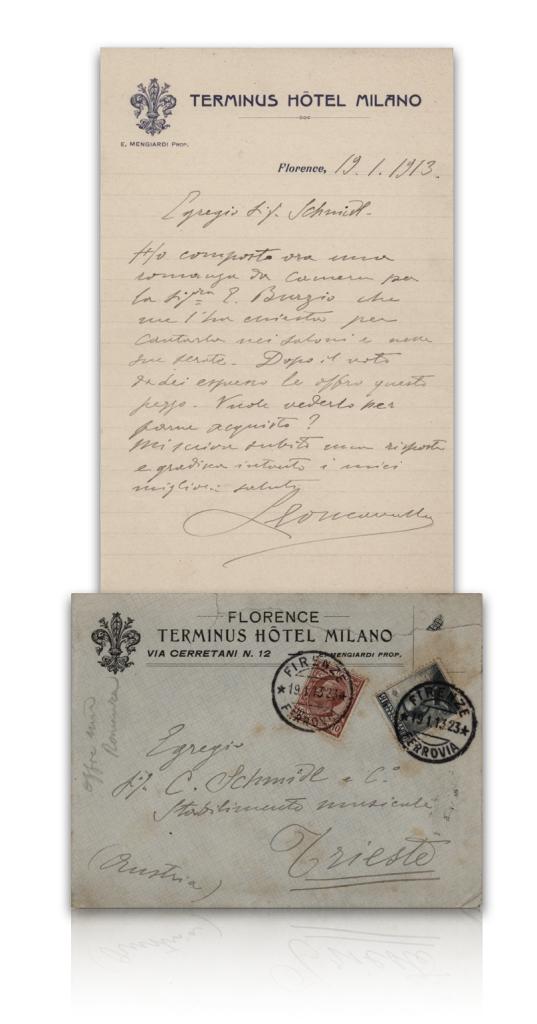 TERMINUS HÔTEL MILANO
E. MENGIARDI PROP.
Florence, 19.1.1913.
Egregio Sig. Schmidl.
Ho composto ora una
romanza da camera per
la Sig.ra E. Burzio che
me l'ha chiesta per
cantarla nei saloni e nelle
sue serate. Dopo il voto
da lei espresso le offro questo
pezzo. Vuole vederlo per
farne acquisto?
Mi scriva subito una risposta
e gradisca intanto i miei
migliori saluti
Leoncavallo
FLORENCE
TERMINUS HÔTEL MILANO
VIA CERRETANI N. 12
E. MENGIARDI PROP.
FIRENZE
★19.1.13.23★
FERROVIA
FIRENZE
★19.1.13.23★
FERROVIA
Offre una
Romanza
Egregio
Sig. C. Schmidl e C.o
Stabilimento musicale
Trieste
(Austria)